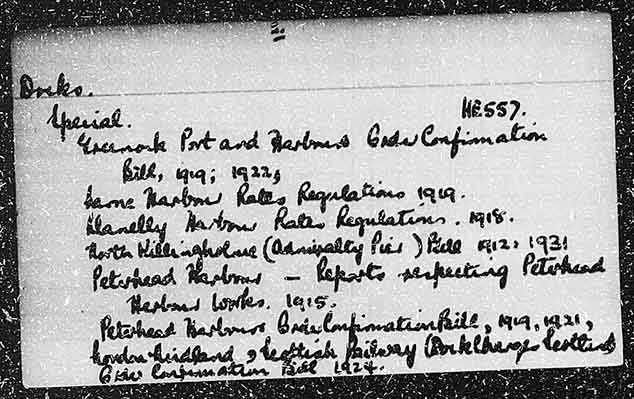 Docks.
Special. HE557.
Greenock Port and Harbours Order Confirmation
Bill, 1919; 1922,
Larne Harbour Rates Regulations 1919.
Llanelly Harbour Rates Regulations. 1918.
North Killingholme (Admiralty Pier) Bill 1912; 1931
Peterhead Harbour — Reports respecting Peterhead
Harbour Works. 1915.
Peterhead Harbours Order Confirmation Bill, 1919, 1921,
London Midland & Scottish Railway (Dock Charges Scotland)
Order Confirmation Bill 1924.